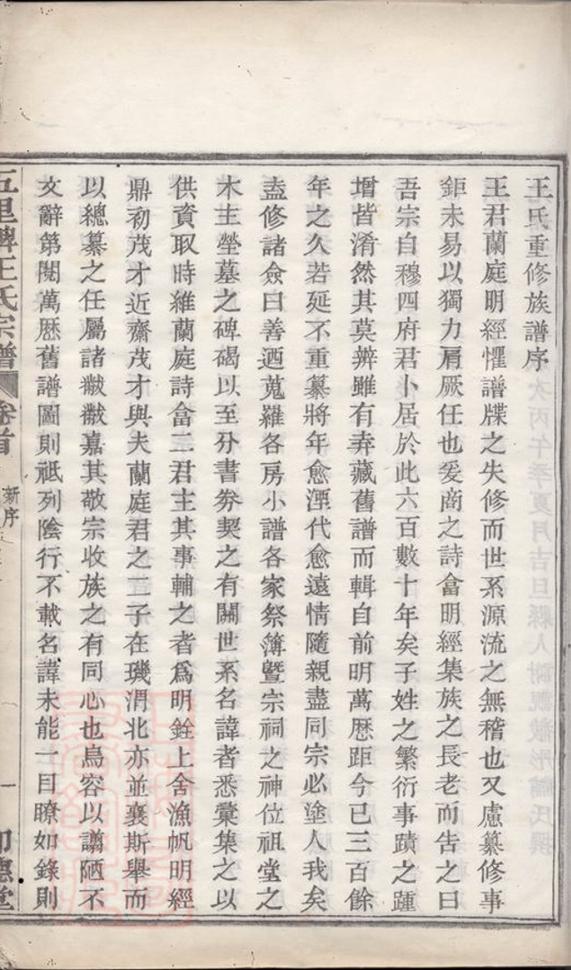 王氏重修族譜序
王君蘭庭明經懼譜牒之失修而世系源流之無稽也又慮纂修事
鉅未易以獨力肩厥任也爰商之詩畬明經集族之長老而告之曰
吾宗自穆四府君卜居於此六百數十年矣子姓之繁衍事蹟之踵
增皆淆然其莫辨雖有弆藏舊譜而輯自前明萬厯距今已三百餘
年之久若延不重纂將年愈湮代愈遠情隨親盡同宗必塗人我矣
盍修諸僉曰善迺蒐羅各房小譜各家祭簿暨宗祠之神位祖堂之
木主塋墓之碑碣以至分書券契之有關世系名諱者悉彚集之以
供資取時維蘭庭詩畬二君主其事輔之者爲明銓上舍漁帆明經
鼎初茂才近齋茂才與夫蘭庭君之二子在璣渭北亦並襄斯舉而
以總纂之任屬諸黻黻嘉其敬宗收族之有同心也烏容以譾陋不
文辭第閱萬厯舊譜圖則祗列陰行不載名諱未能一目瞭如錄則
五里牌王氏宗譜
卷首
新序
一